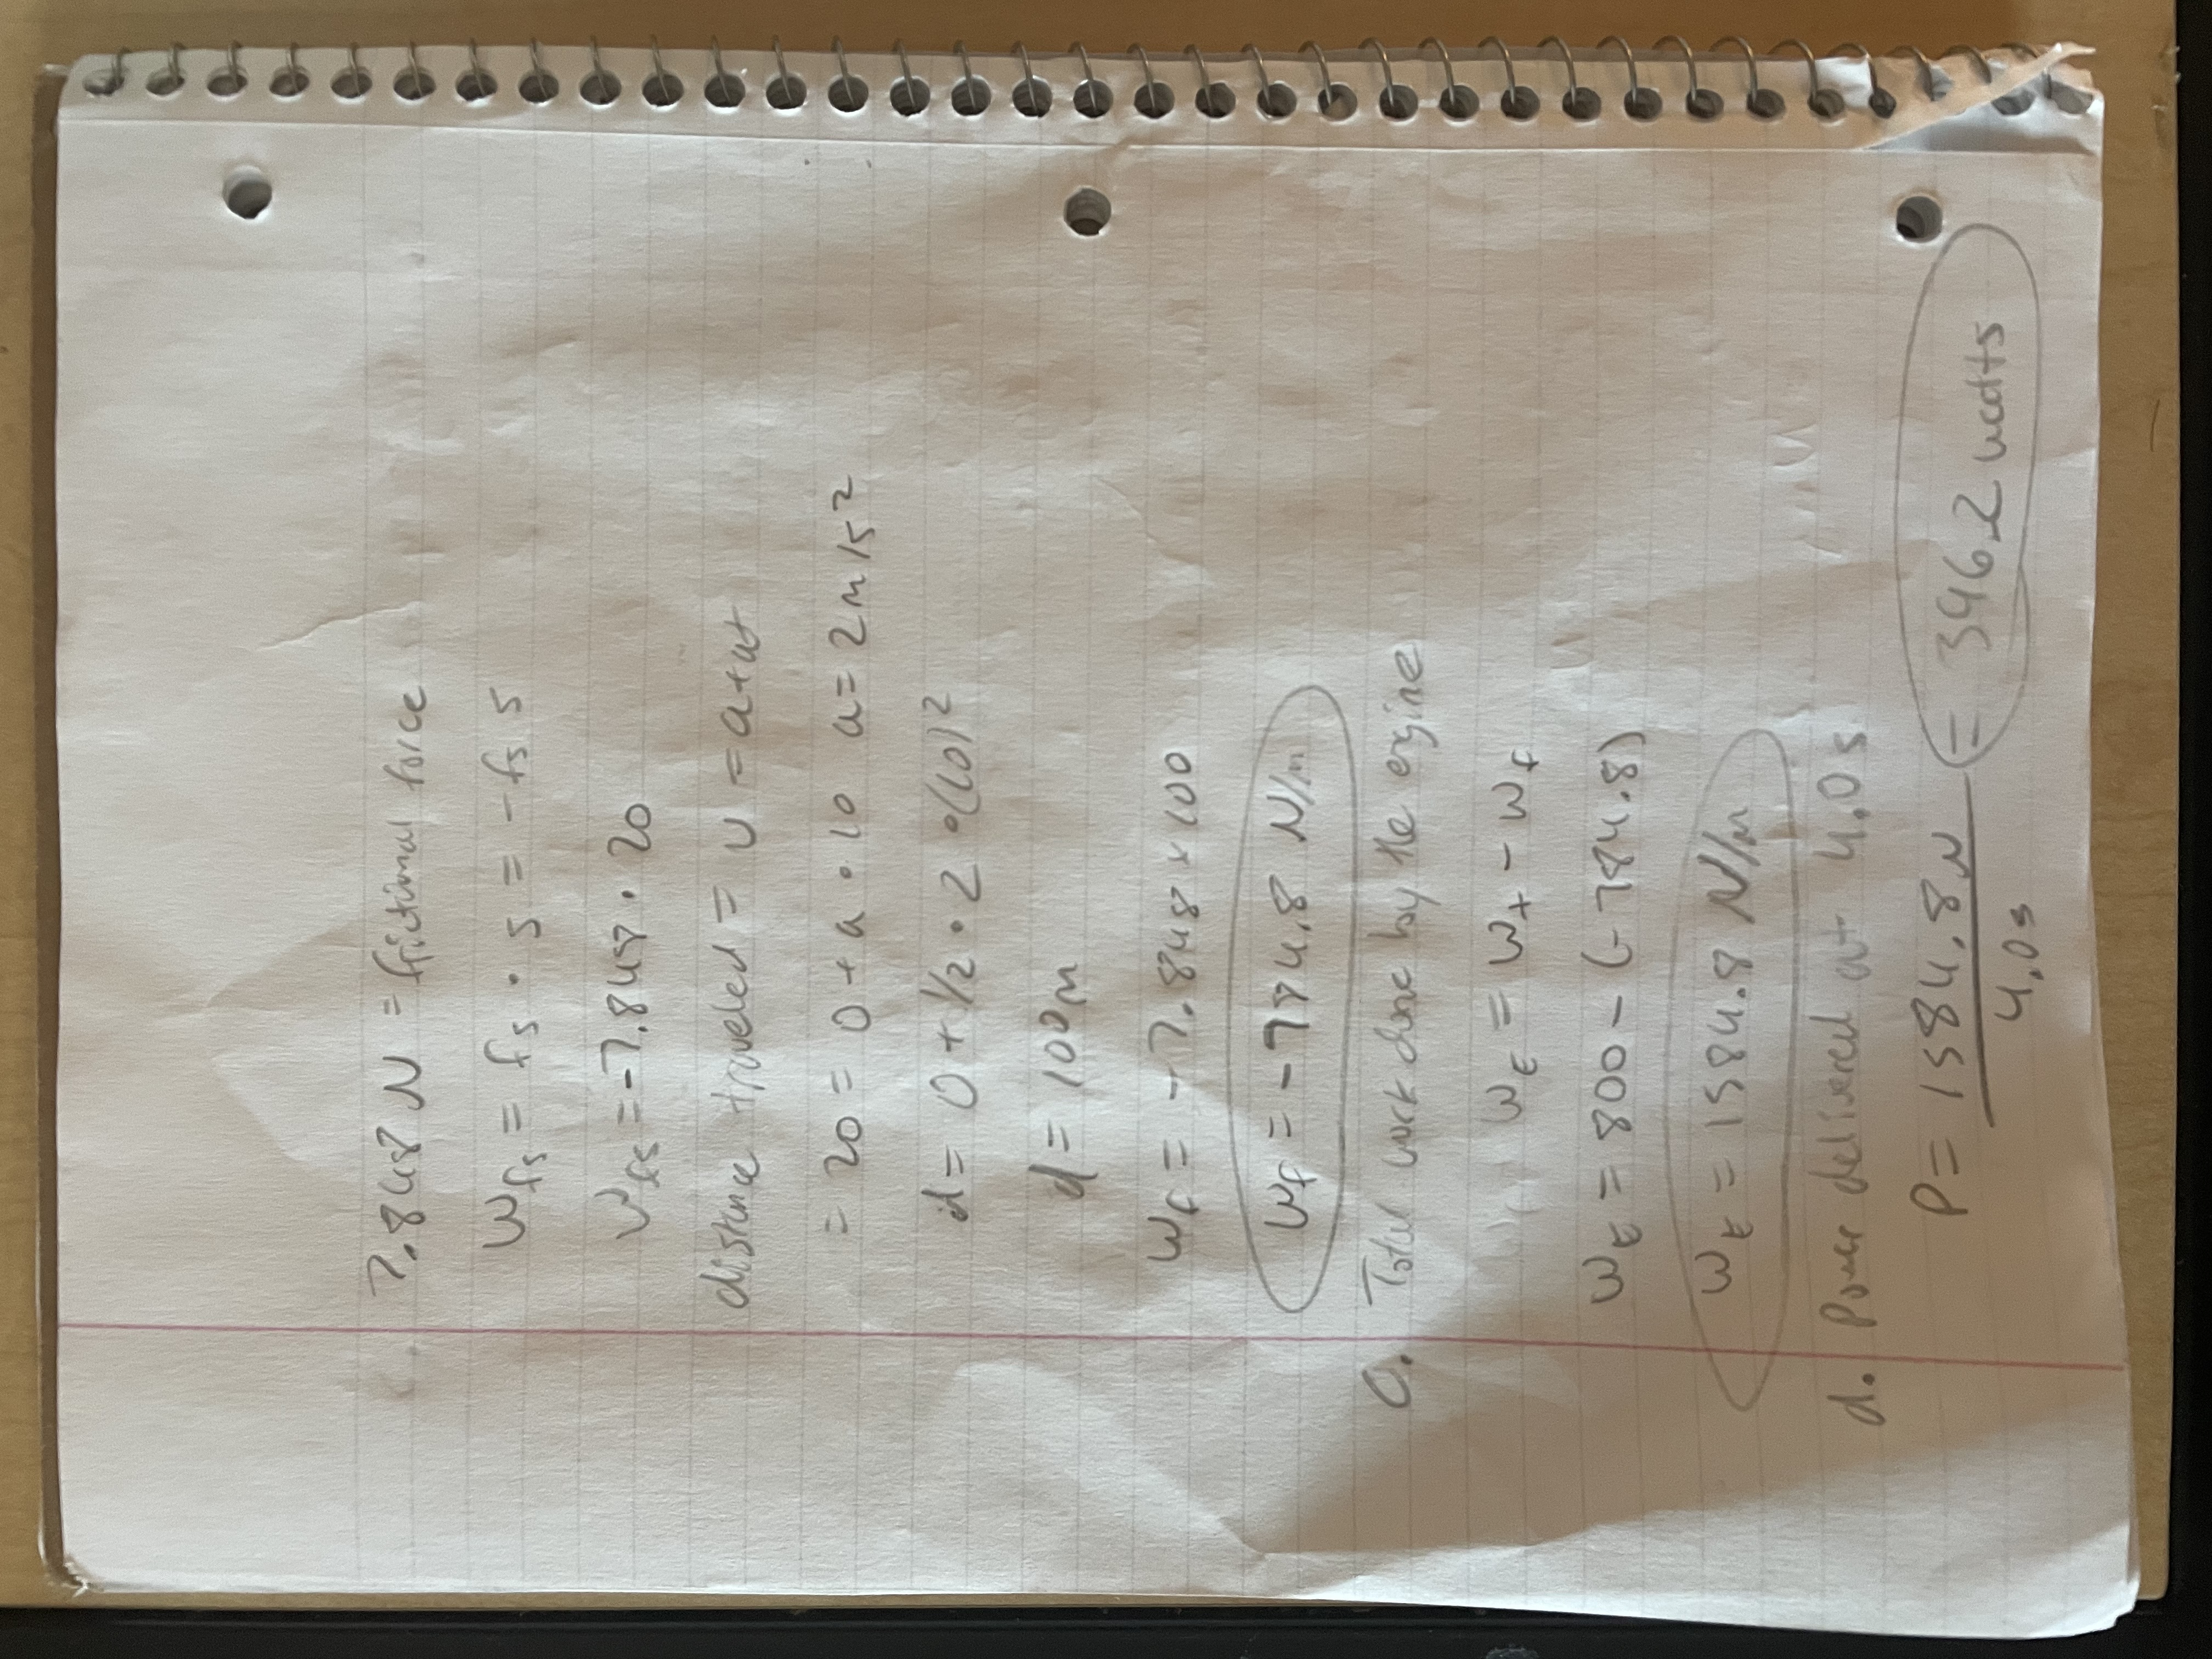 7.848 N = frictional force
Wfs = fs · s = -fs s
Wfs = -7.848 · 20
distance traveled = u = a+at
= 20 = 0 + a · 10 a = 2m/s²
d = 0 + 1/2 · 2 · (10)²
d = 100m
Wf = -7.848 x 100
Wf = -784.8 N/m
C. Total work done by the engine
WE = Wt - Wf
WE = 800 - (-784.8)
WE = 1584.8 N/m
d. Power delivered at 4.0s
P = 1584.8N = 396.2 watts
4.0s